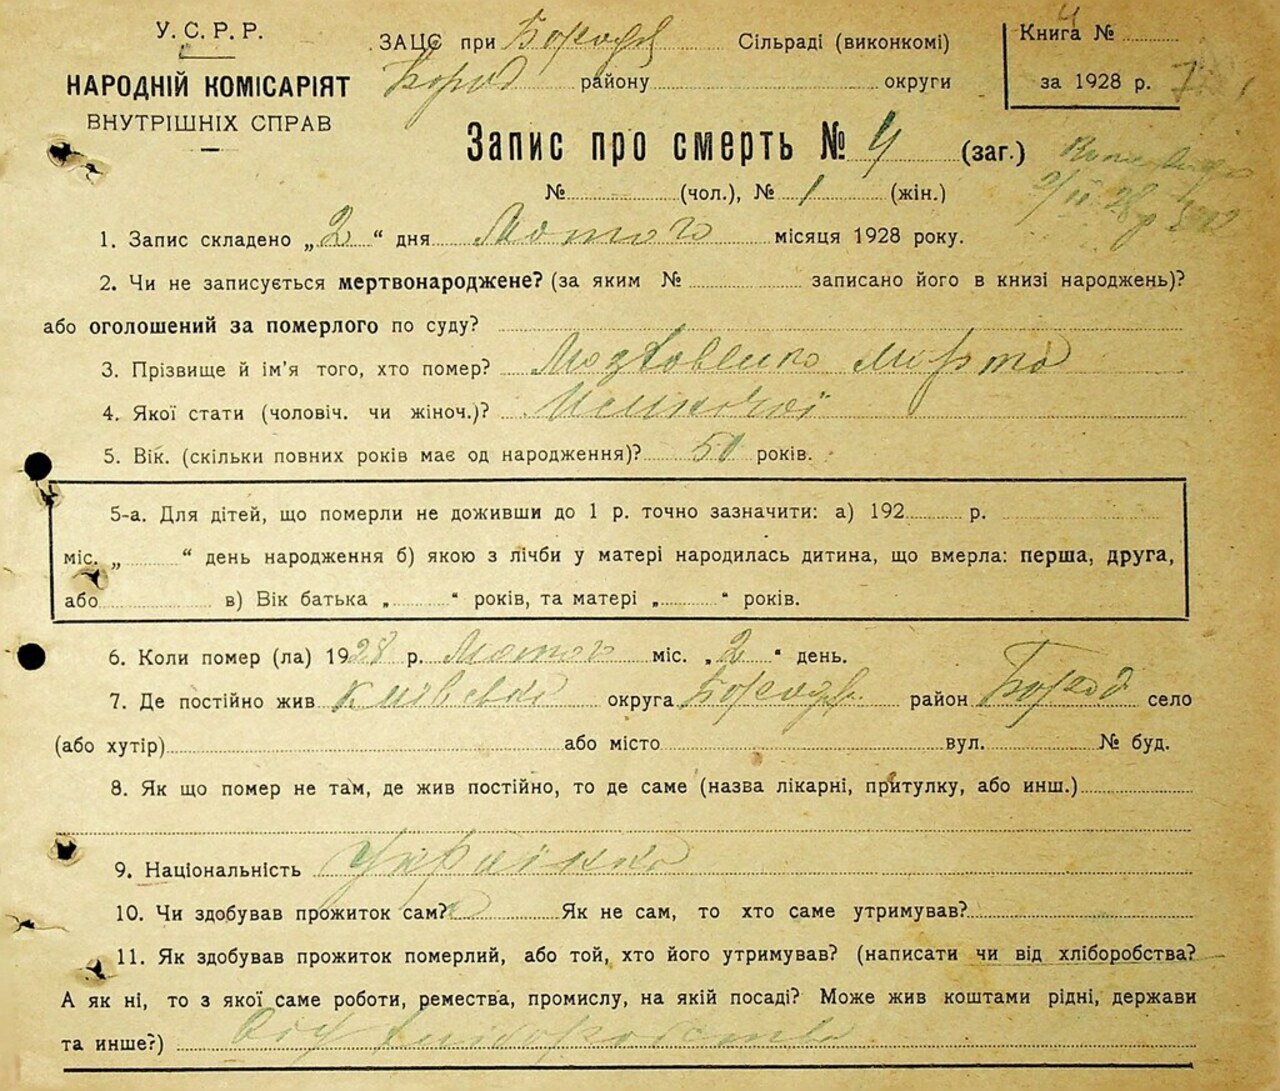 У. С. Р. Р.
НАРОДНІЙ КОМІСАРІЯТ
ВНУТРІШНІХ СПРАВ
ЗАЦС при Бородя Сільраді (виконкомі)
Бород району округи
Книга № 4
за 1928 р. 7
Запис про смерть № 4 (заг.)
№ (чол.), № 1 (жін.)
1. Запис складено „ 2 “ дня Лютого місяця 1928 року.
2. Чи не записується мертвонароджене? (за яким № записано його в книзі народжень)?
або оголошений за померлого по суду?
3. Прізвище й ім'я того, хто помер? Марта
4. Якої стати (чоловіч. чи жіноч.)? Жіночої
5. Вік. (скільки повних років має од народження)? 50 років.
5-а. Для дітей, що померли не доживши до 1 р. точно зазначити: а) 192 р.
міс. „ “ день народження б) якою з лічби у матері народилась дитина, що вмерла: перша, друга,
або в) Вік батька „ “ років, та матері „ “ років.
6. Коли помер (ла) 1928 р. Лютого міс. „ 2 “ день.
7. Де постійно жив Київська округа Бородя. район Бород село
(або хутір) або місто вул. № буд.
8. Як що помер не там, де жив постійно, то де саме (назва лікарні, притулку, або инш.)
9. Національність Українка
10. Чи здобував прожиток сам? Як не сам, то хто саме утримував?
11. Як здобував прожиток померлий, або той, хто його утримував? (написати чи від хліборобства?
А як ні, то з якої саме роботи, ремества, промислу, на якій посаді? Може жив коштами рідні, держави
та инше?) Від хліборобства